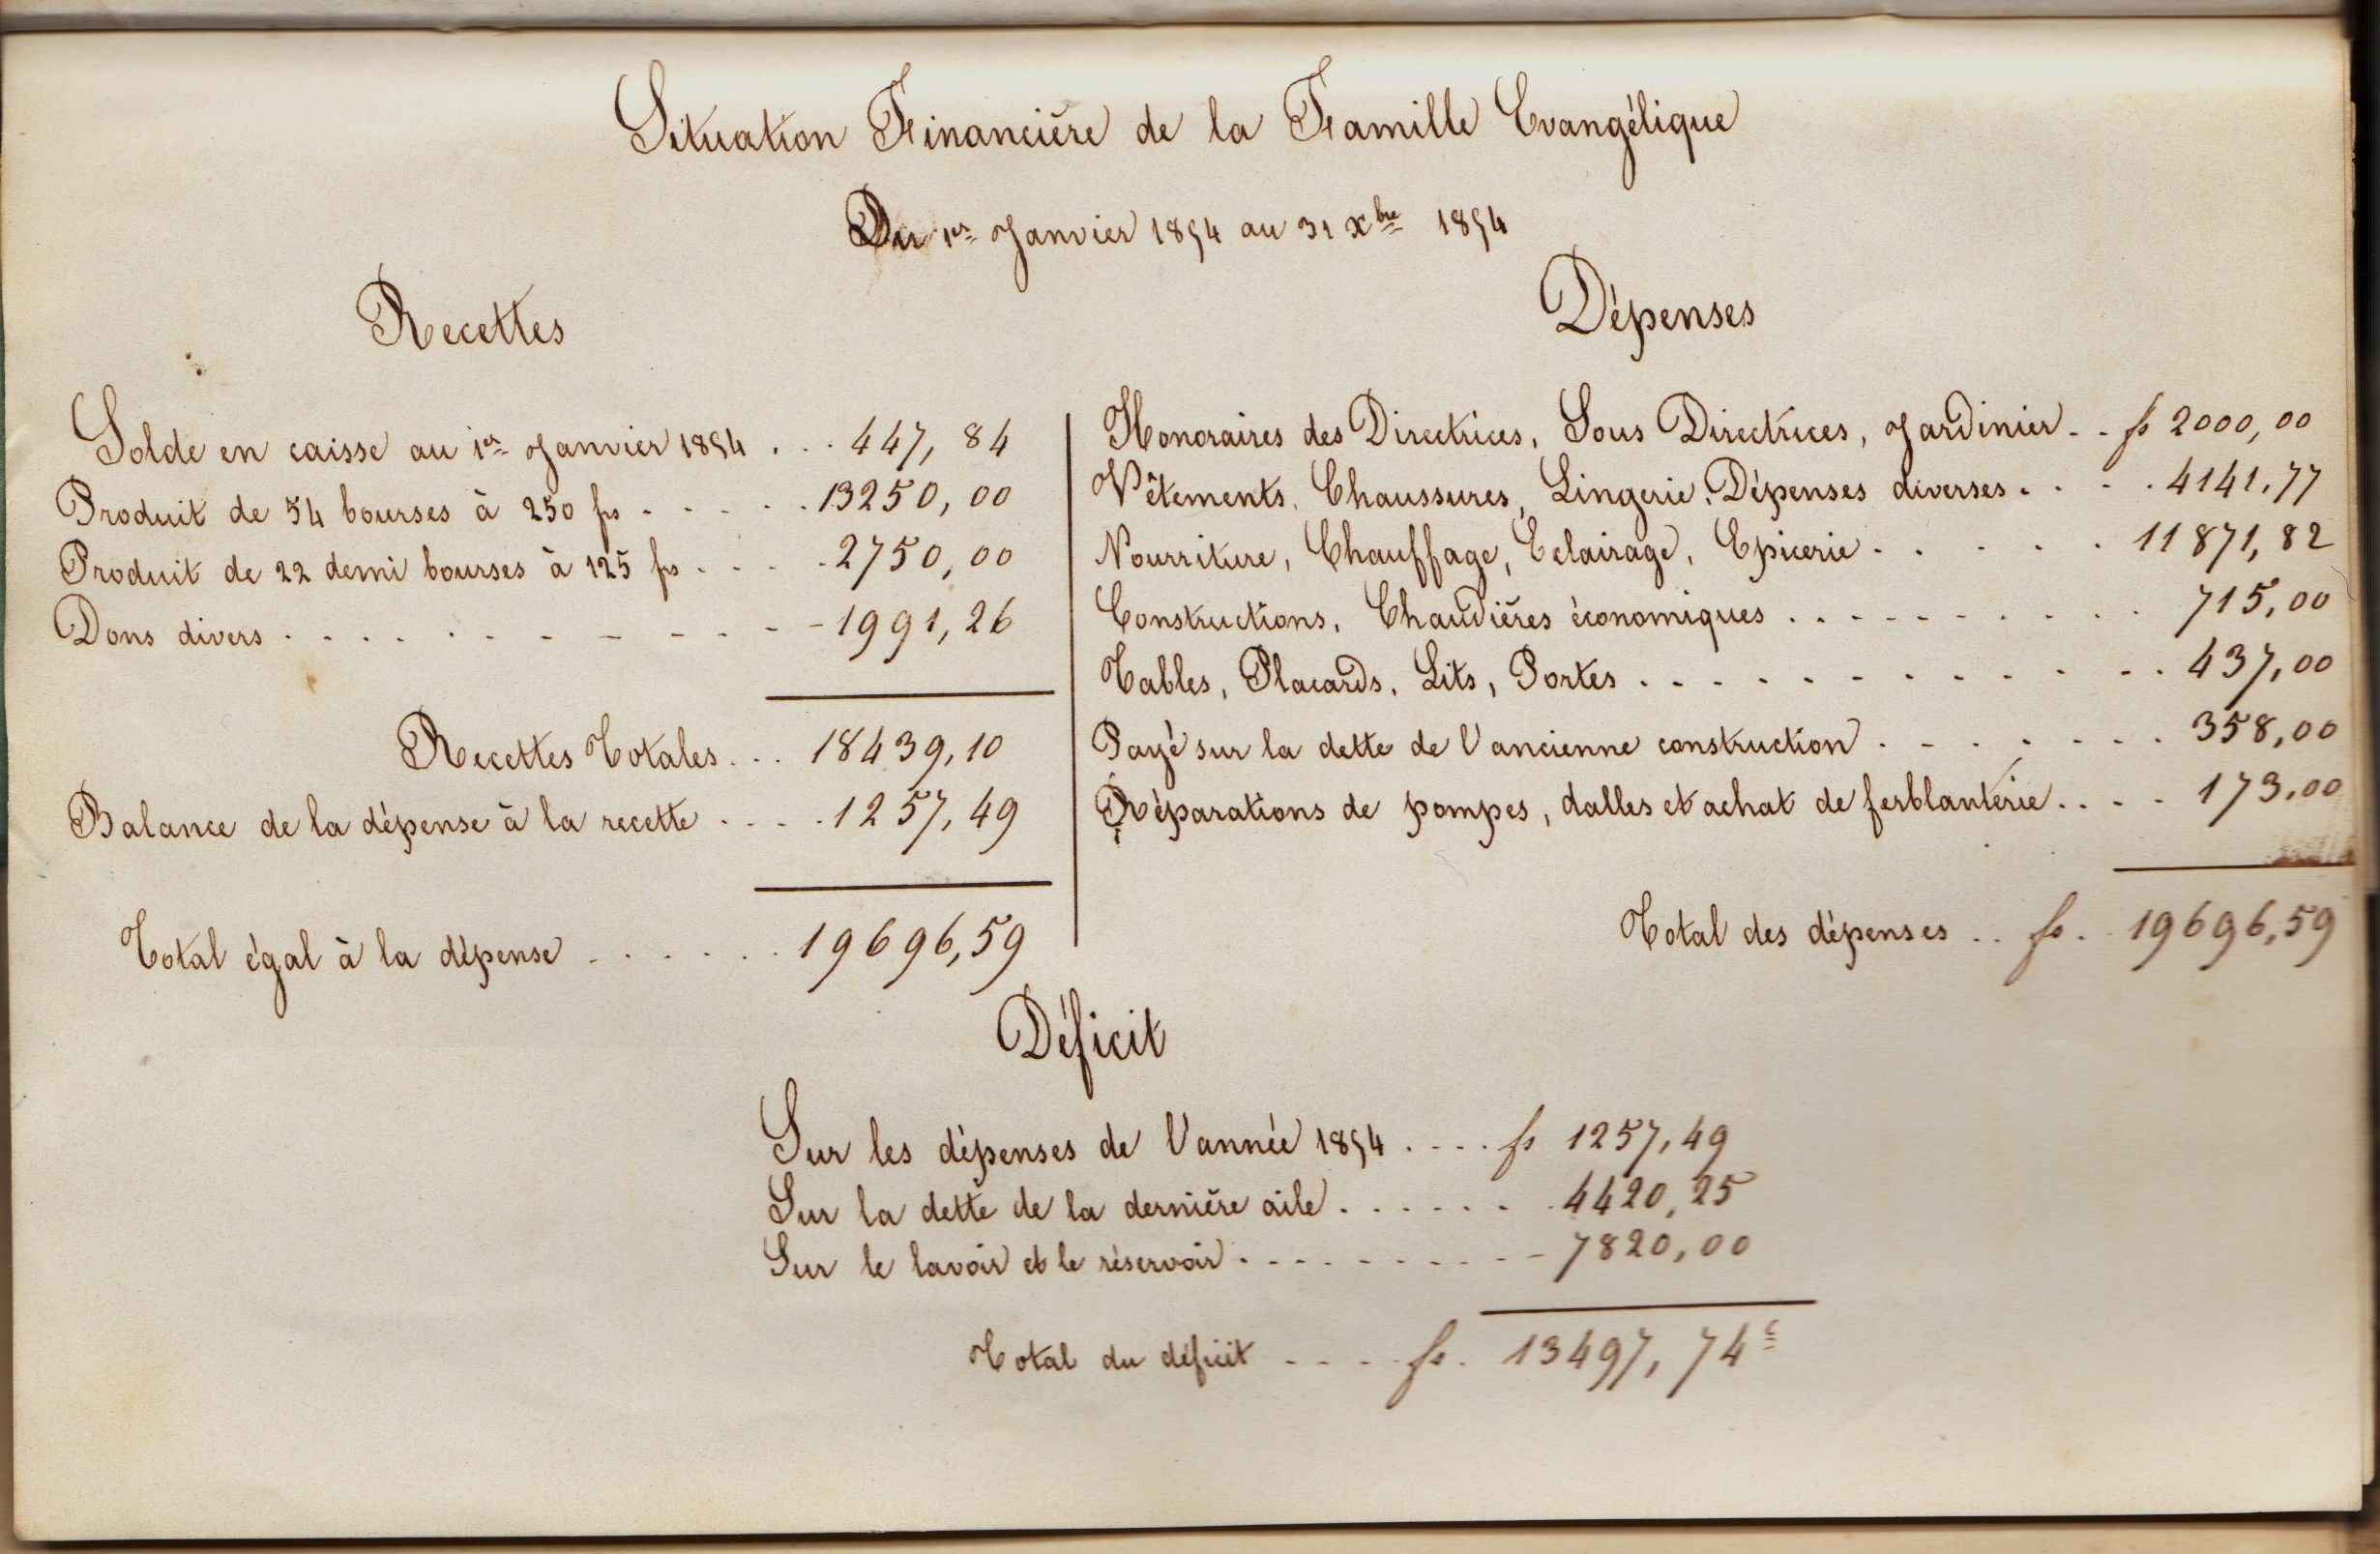 Situation Financière de la Famille Evangélique
Du 1er Janvier 1854 au 31 Xbre 1854
Recettes
Solde en caisse au 1er Janvier 1854 . . . 447, 84
Produit de 54 bourses à 250 frs . . . . . 13250, 00
Produit de 22 demi bourses à 125 frs . . . . 2750, 00
Dons divers . . . . . . . . . . . 1991, 26
Recettes Totales . . . 18439, 10
Balance de la dépense à la recette . . . . 1257, 49
Total égal à la dépense . . . . . . 19696,59
Dépenses
Honoraires des Directrices, Sous Directrices, Jardinier . . fs 2000,00
Vêtements, Chaussures, Lingerie, Dépenses diverses . . . . 4141,77
Nourriture, Chauffage, Eclairage, Epicerie . . . . . 11871,82
Constructions, Chaudières économiques . . . . . . . . . . 715,00
Tables, Placards, Lits, Portes . . . . . . . . . . . . 437,00
Payé sur la dette de l'ancienne construction . . . . . . . 358,00
Réparations de pompes, dalles et achat de ferblanterie . . . . 173,00
Total des dépenses . . fs. 19696,59
Déficit
Sur les dépenses de l'année 1854 . . . . fs 1257,49
Sur la dette de la dernière aile . . . . . . . 4420,25
Sur le lavoir et le réservoir . . . . . . . . . 7820,00
Total du déficit . . . . fs. 13497, 74c